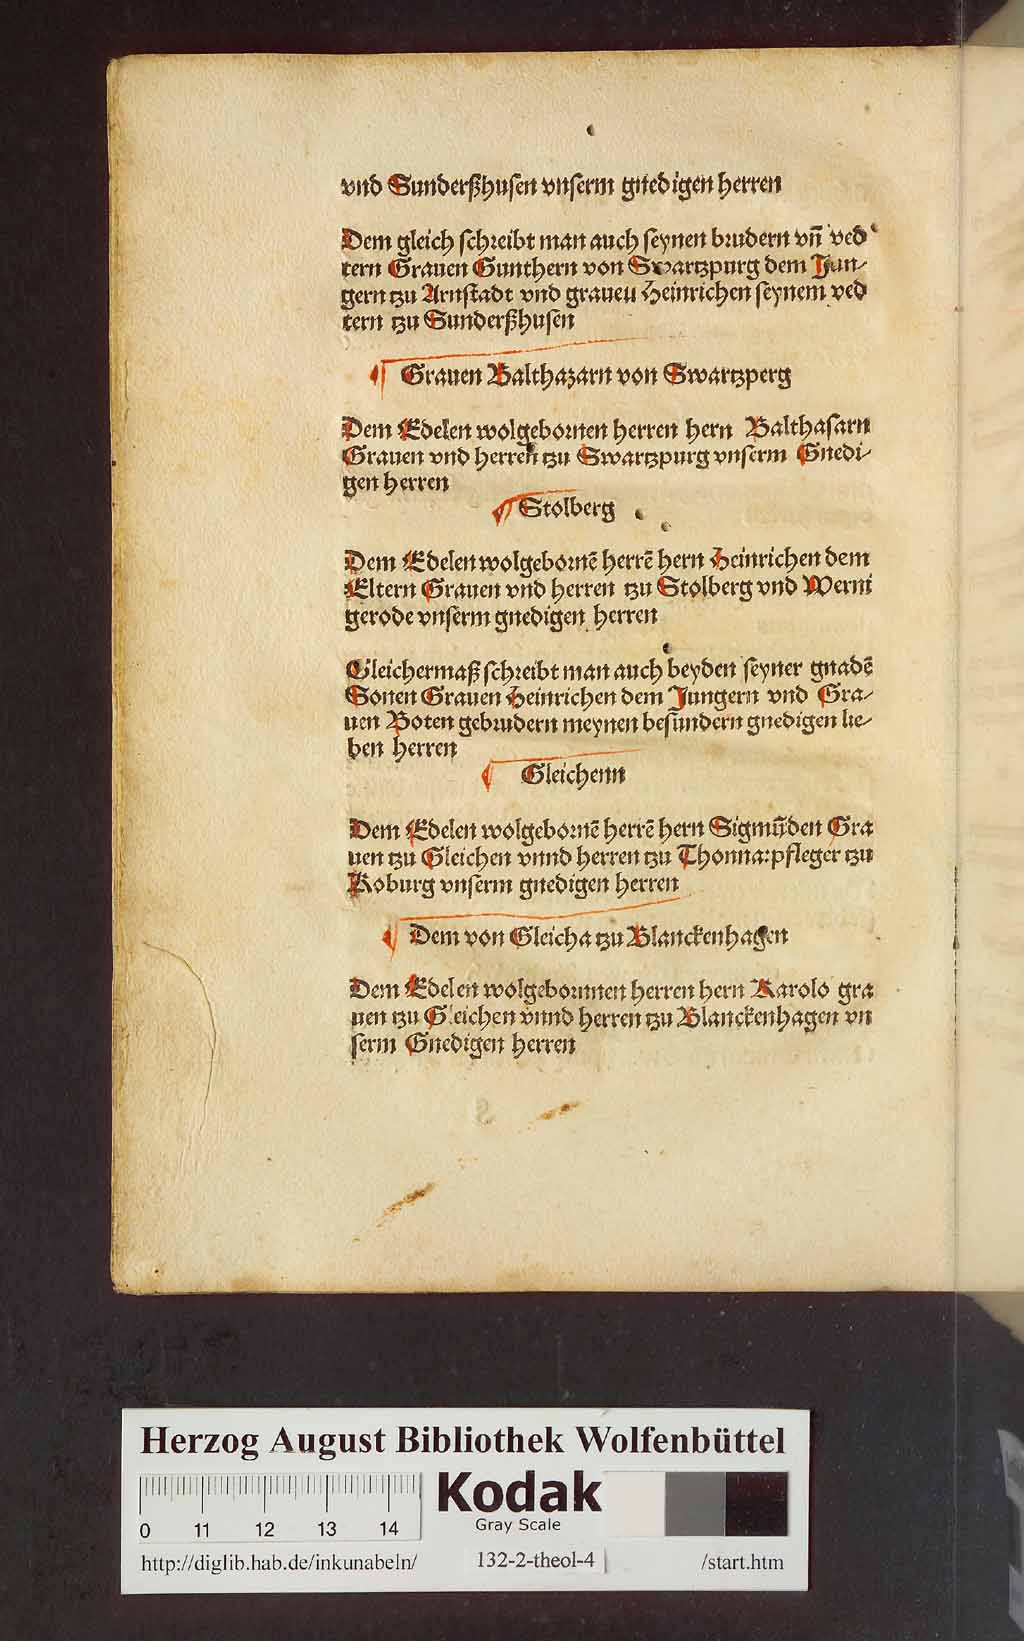 vnd Sunderßhusen vnserm gnedigen herren
Dem gleich schreibt man auch seynen brudern vn̄ ved
tern Grauen Gunthern von Swartzpurg dem Jun-
gern tzu Arnstadt vnd graueu Heinrichen seynem ved
tern tzu Sunderßhusen
¶ Grauen Balthazarn von Swartzperg
Dem Edelen wolgebornen herren hern Balthasarn
Grauen vnd herren tzu Swartzpurg vnserm Gnedi-
gen herren
¶ Stolberg
Dem Edelen wolgebornē herrē hern Heinrichen dem
Eltern Grauen vnd herren tzu Stolberg vnd Werni
gerode vnserm gnedigen herren
Gleichermaß schreibt man auch beyden seyner gnadē
Sonen Grauen Heinrichen dem Jungern vnd Gra-
uen Boten gebrudern meynen besundern gnedigen lie-
ben herren
¶ Gleichenn
Dem Edelen wolgebornē herrē hern Sigmūden Gra
uen tzu Gleichen vnnd herren tzu Thonna: pfleger tzu
Koburg vnserm gnedigen herren
¶ Dem von Gleicha tzu Blanckenhagen
Dem Edelen wolgebornnen herren hern Karolo gra
uen tzu Gleichen vnnd herren tzu Blanckenhagen vn
serm Gnedigen herren
Herzog August Bibliothek Wolfenbüttel
0 11 12 13 14
Kodak
Gray Scale
http://diglib.hab.de/inkunabeln/ 132-2-theol-4 /start.htm